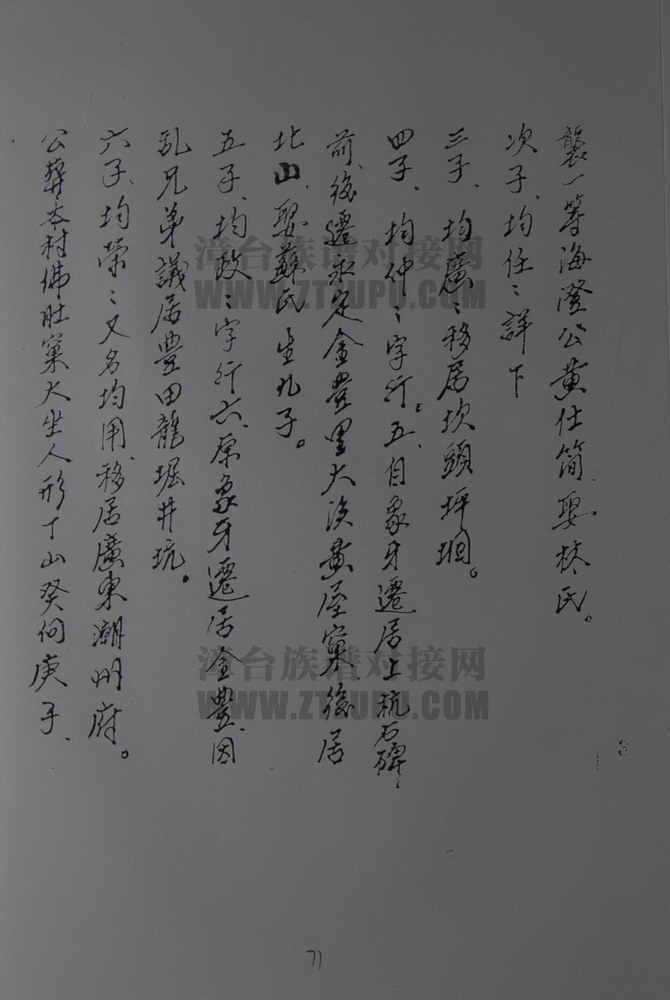 襲一等海澄公黄仕簡、娶林氏。
次子、均任：詳下
三子、均廣：移居坎頭坪洄。
四子、均仲：字行。五、自象牙遷居上杭石碑
前、後遷永定金豊里大溪黄屋窠、後居
北山、娶蘇氏生九子。
五子、均政：字行六、原象牙遷居金豊、因
乱兄弟議居豊田龍堀井坑。
六子、均荣：又名均用、移居廣東潮州府。
公葬本村佛肚窠大坐人形丁山癸向庚子、
71
漳台族谱对接网
WWW.ZTZUPU.COM
漳台族谱对接网
WWW.ZTZUPU.COM